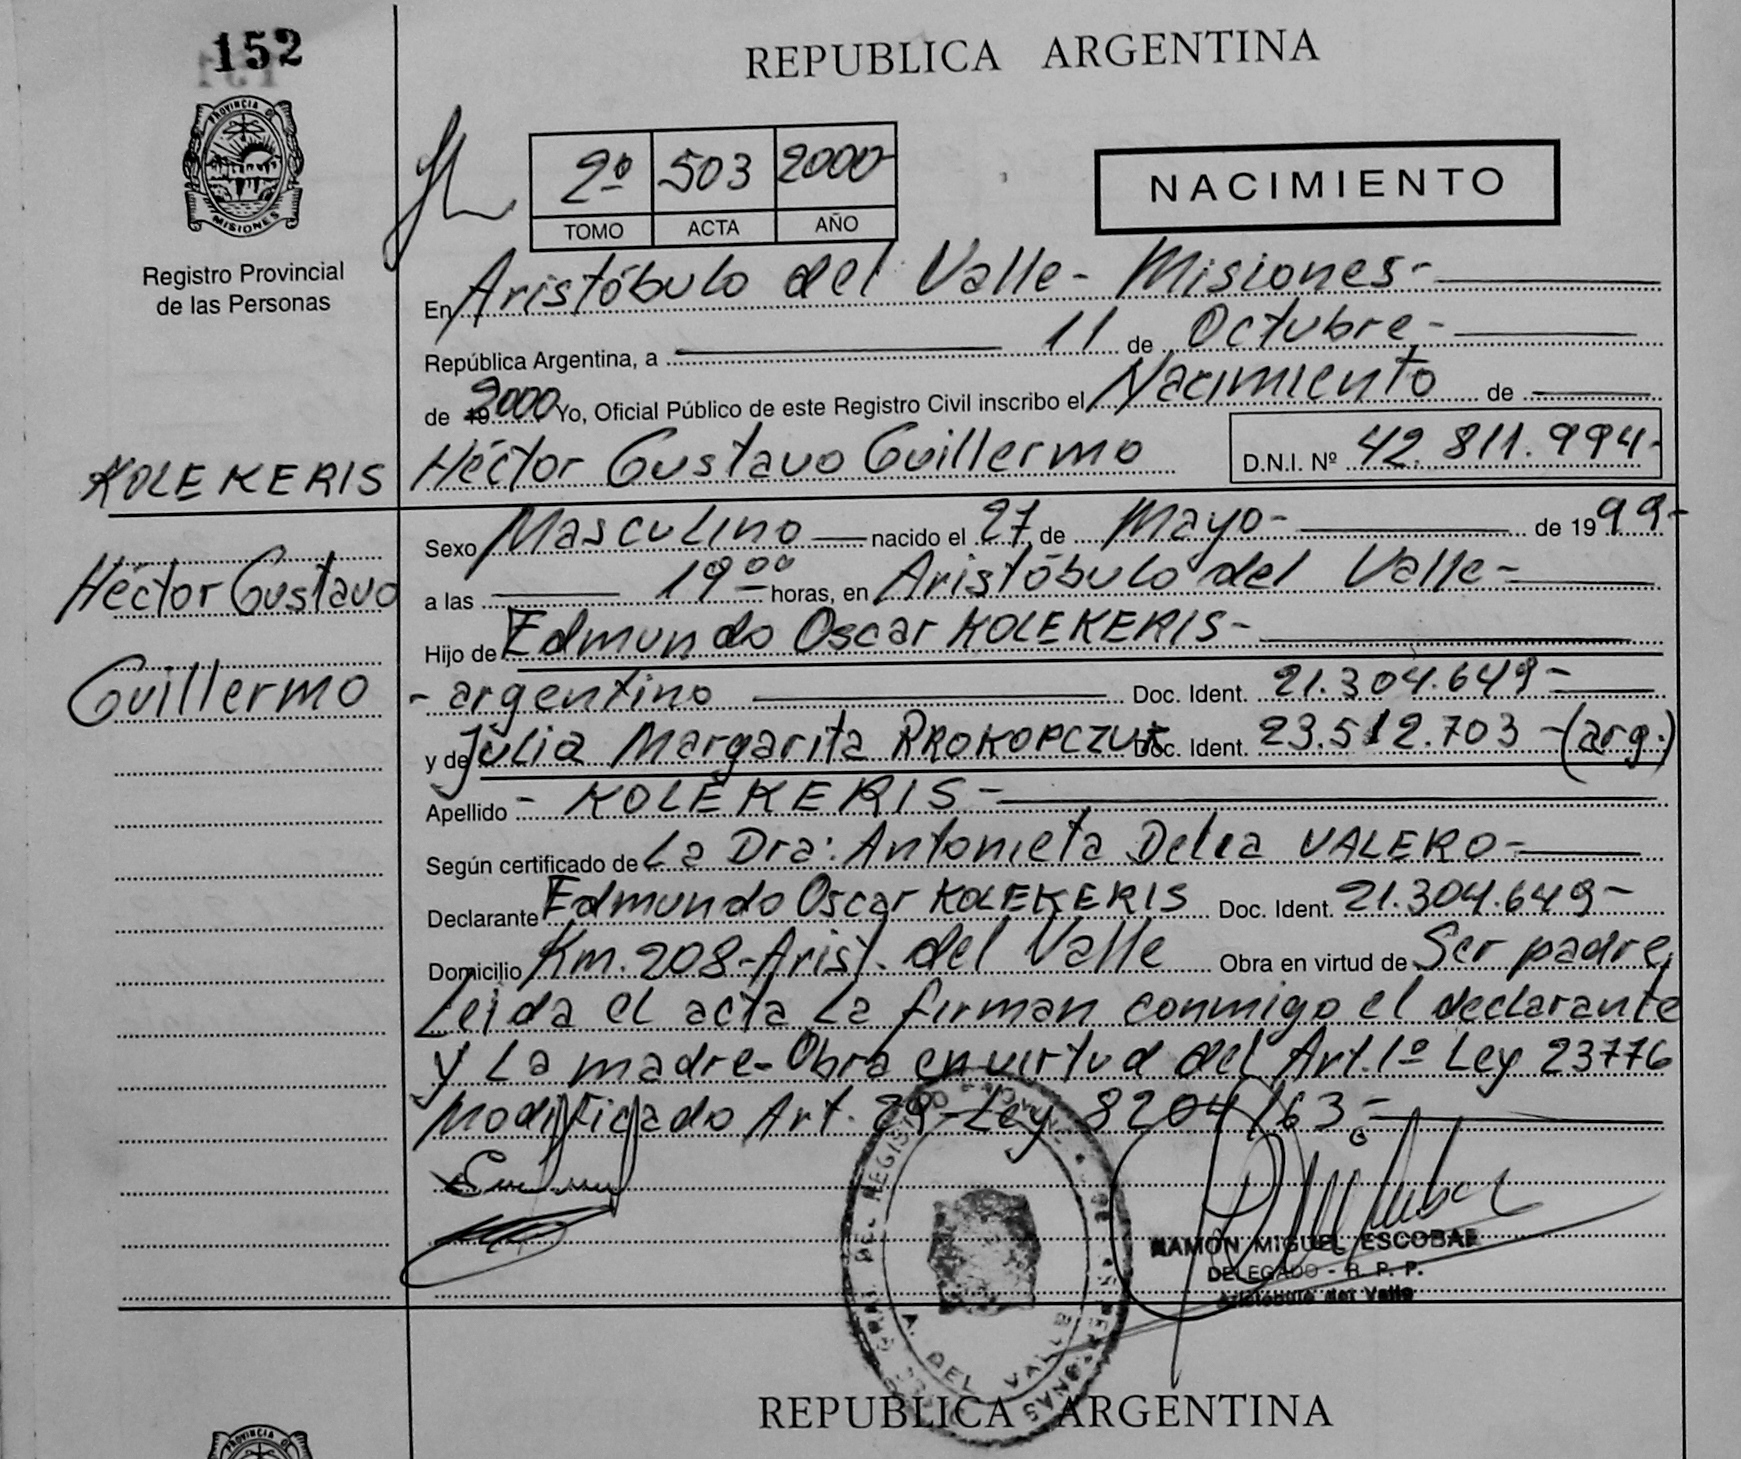 152
REPUBLICA ARGENTINA
PROVINCIA DE
MISIONES
Registro Provincial
de las Personas
2º 503 2000
TOMO ACTA AÑO
NACIMIENTO
En Aristóbulo del Valle - Misiones -
República Argentina, a 11 de Octubre -
de 2000 Yo, Oficial Público de este Registro Civil inscribo el Nacimiento de
KOLEKERIS
Héctor Gustavo
Guillermo
Héctor Gustavo Guillermo D.N.I. Nº 42.811.994-
Sexo Masculino nacido el 27 de Mayo - de 1999-
a las 19⁰⁰ horas, en Aristóbulo del Valle -
Hijo de Edmundo Oscar KOLEKERIS -
- argentino Doc. Ident. 21.304.649 -
y de Julia Margarita PROKOPCZUK Doc. Ident. 23.512.703 - (arg.)
Apellido - KOLEKERIS -
Según certificado de La Dra: Antonieta Delia VALERO -
Declarante Edmundo Oscar KOLEKERIS Doc. Ident. 21.304.649 -
Domicilio Km. 208 - Arist. del Valle Obra en virtud de Ser padre,
Leida el acta La firman conmigo el declarante
y La madre - Obra en virtud del Art. 1º Ley 23776
Modificado Art. 29 - Ley 8204/63.-
RAMON MIGUEL ESCOBAR
DELEGADO - R. P. P.
Aristóbulo del Valle
A. DEL VALLE
REPUBLICA ARGENTINA
PROVINCIA DE